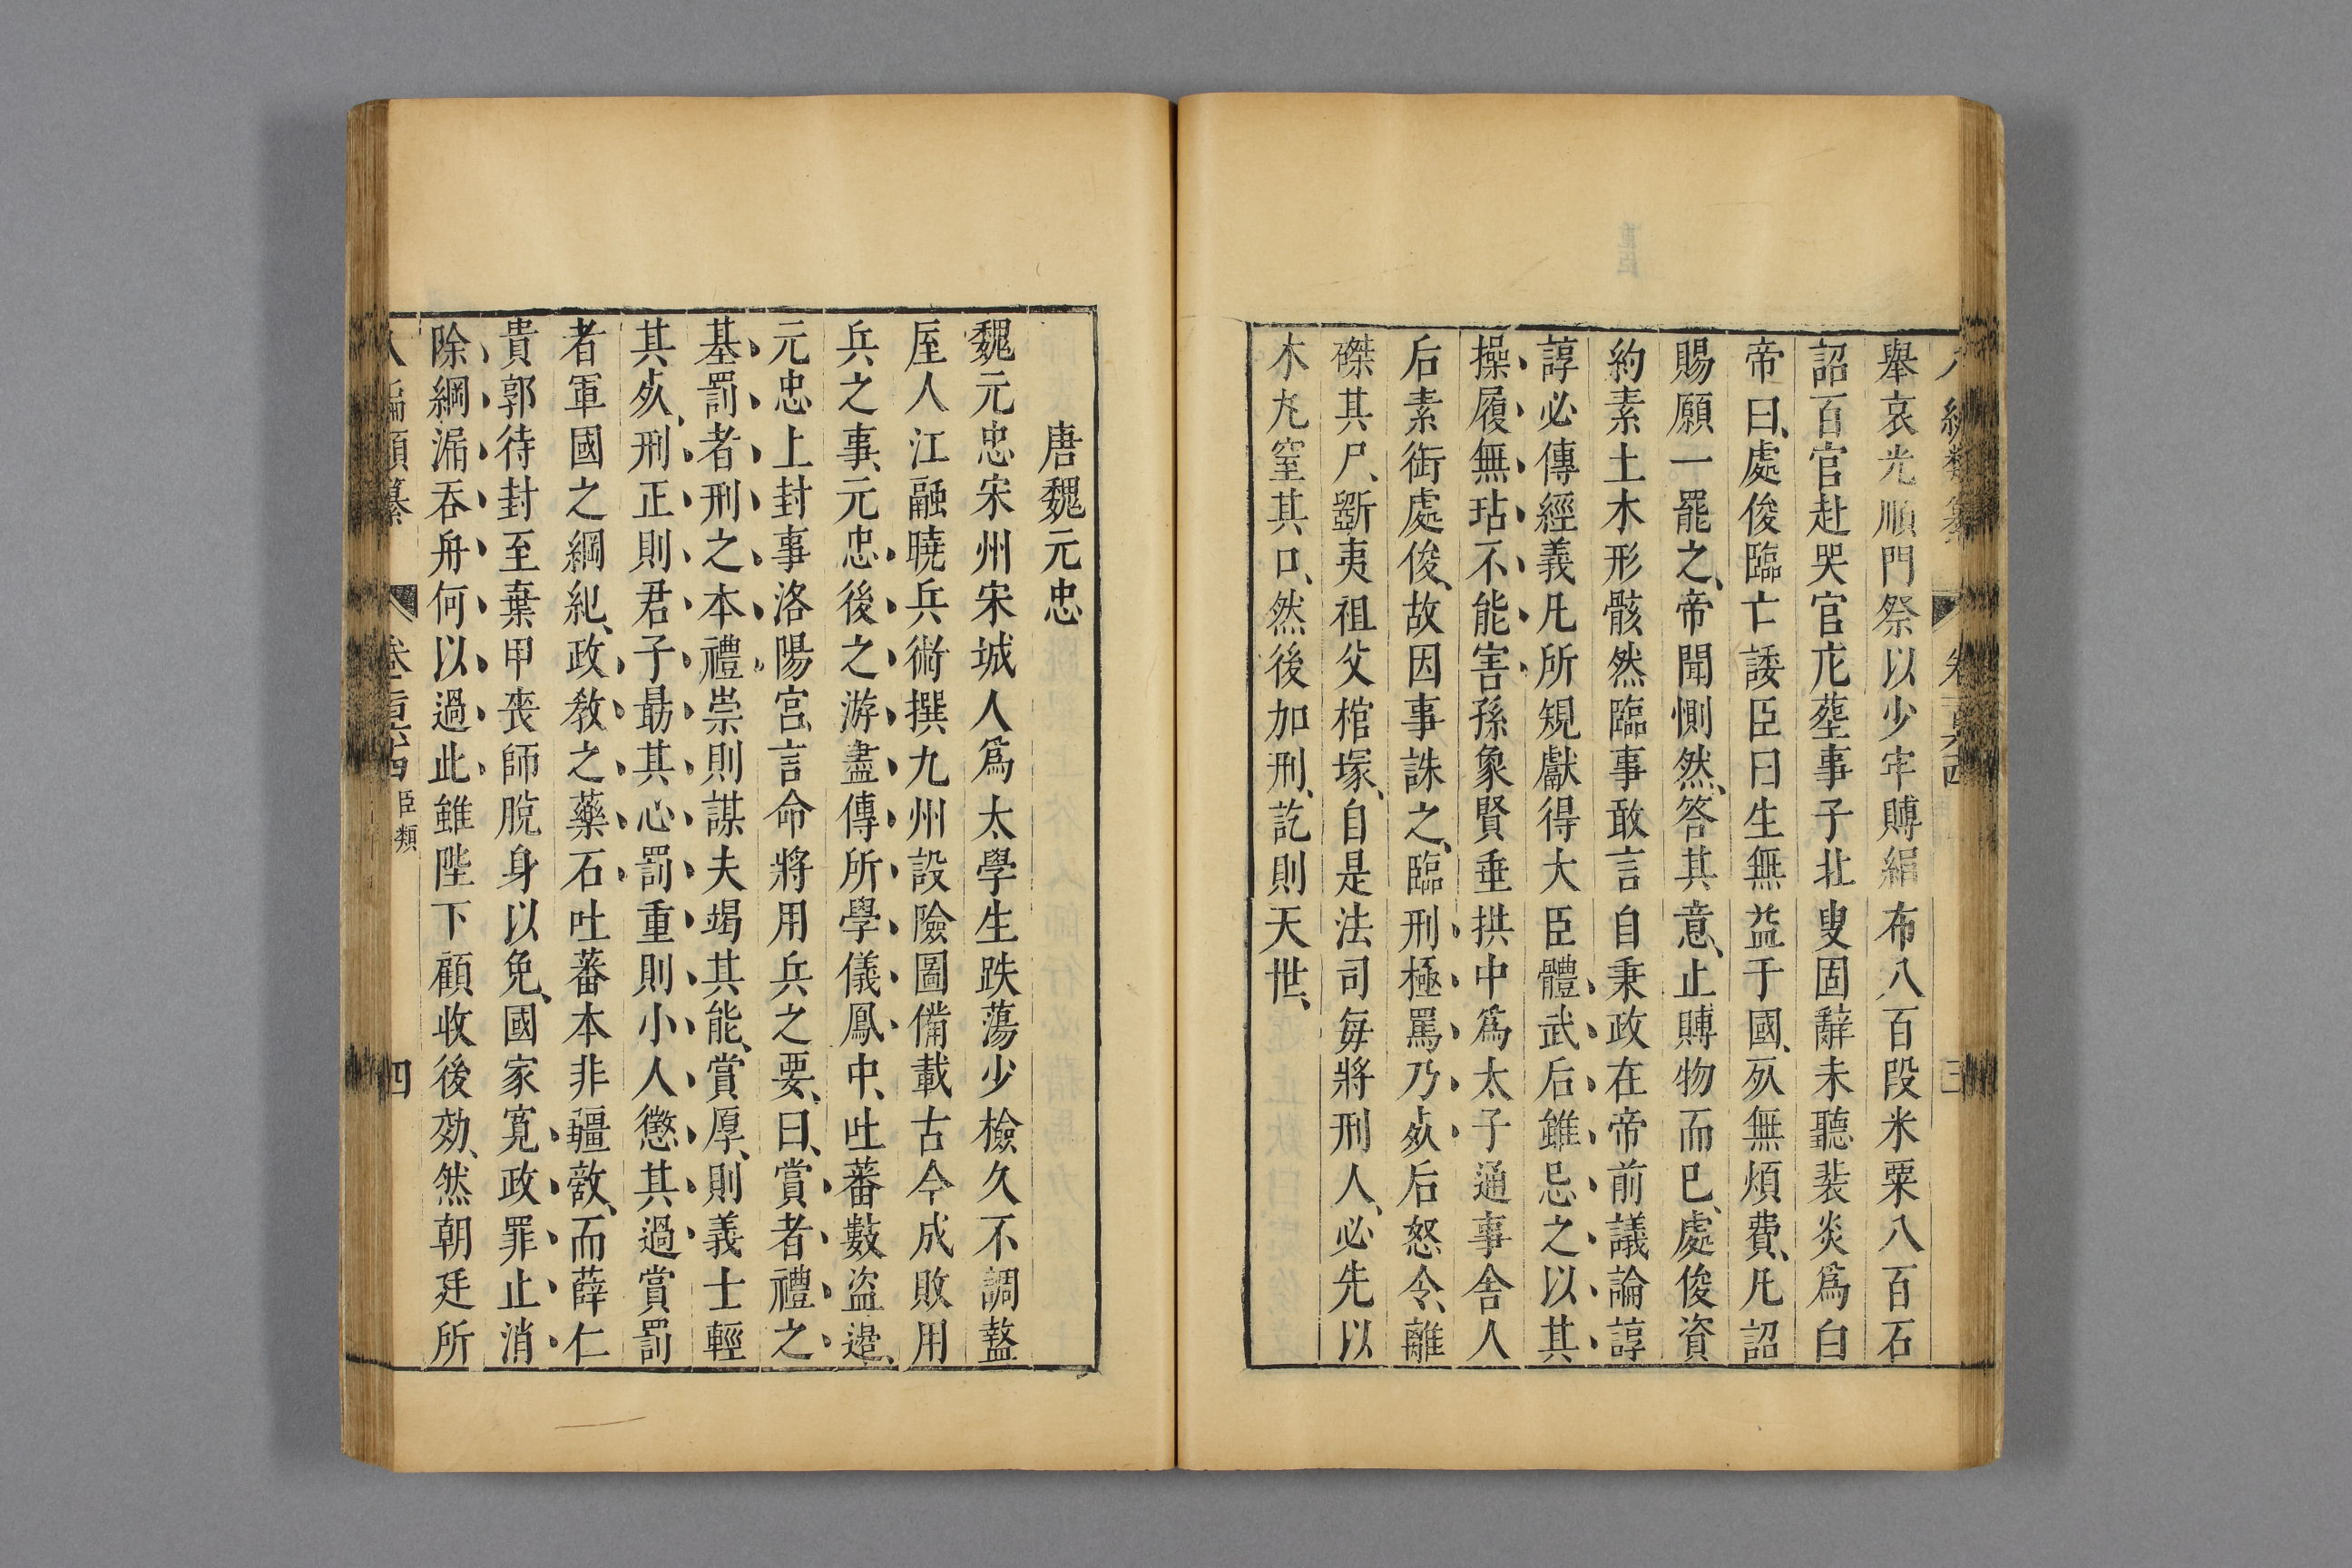 舉哀光順門祭以少牢賻絹布八百段米粟八百石
詔百官赴哭官庀塟事子北叟固辭未聽裴炎爲白
帝曰、處俊臨亡諉臣曰生無益于國、死無煩費、凡詔
賜願一罷之、帝聞惻然、答其意、止賻物而已、處俊資
約素土木形骸然臨事敢言自秉政在帝前議論諄
諄必傳經義凡所規獻得大臣體、武后雖忌之以其
操履無玷不能害孫象賢垂拱中爲太子通事舍人
后素銜處俊、故因事誅之、臨刑極罵乃死后怒令、離
磔其尸、斵夷祖父棺塚、自是法司每將刑人、必先以
木丸窒其口、然後加刑、訖則天世、
唐魏元忠
魏元忠宋州宋城人爲太學生跌蕩少檢久不調盩
厔人江融曉兵術撰九州設險圖備載古今成敗用
兵之事、元忠後之游盡傳所學儀鳳中、吐蕃數盜邉、
元忠上封事洛陽宮言命將用兵之要、曰、賞者禮之
基罰者刑之本禮崇則謀夫竭其能、賞厚、則義士輕
其死、刑正則君子勗其心罰重則小人懲其過賞罰
者軍國之綱紀、政教之藥石吐蕃本非疆敵、而薛仁
貴郭待封至棄甲喪師脫身以免、國家寬政罪止消
除網漏吞舟何以過此雖陛下顧收後効、然朝廷所
八編類纂 卷一百六十四 臣類 四